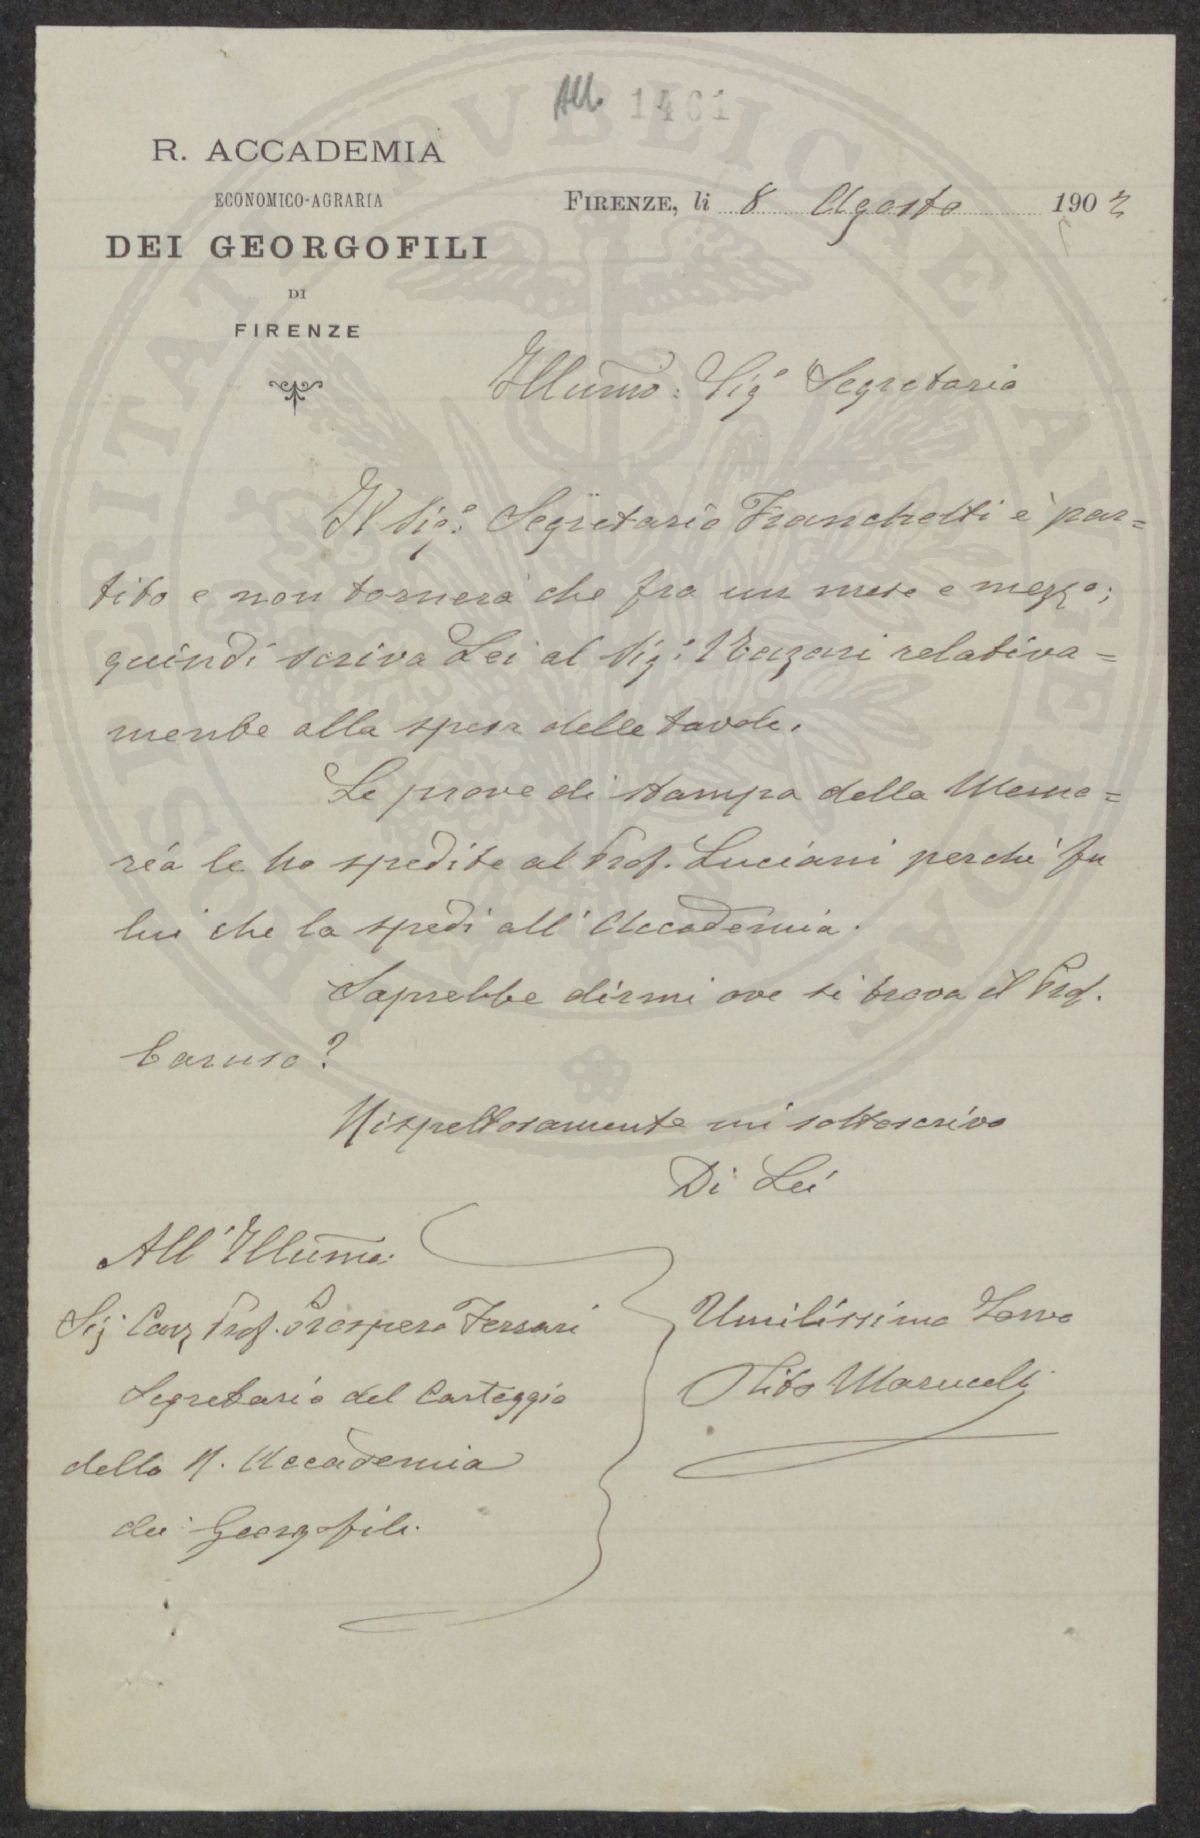 All. 1461
R. ACCADEMIA
ECONOMICO-AGRARIA
DEI GEORGOFILI
DI
FIRENZE
FIRENZE, li 8 Agosto 1902
Illumo: Sigr Segretario
Il Sigr: Segretario Franchetti è par=
tito e non tornerà che fra un mese e mezzo;
quindi scriva Lei al Sigr: relativa=
mente alla spesa delle tavole.
Le prove di stampa della Memo=
ria le ho spedite al Prof. Luciani perchè fu
lui che la spedì all'Accademia.
Saprebbe dirmi ove si trova il Prof.
Caruso?
Rispettosamente mi sottoscrivo
Di Lei
All'Illumo:
Sig: Cav Prof. Prospero Ferrari
Segretario del Carteggio
della R. Accademia
dei Georgofili.
Umilissimo Servo
Tito Marucelli
PROSPERITATI PVBLICAE AVGENDAE